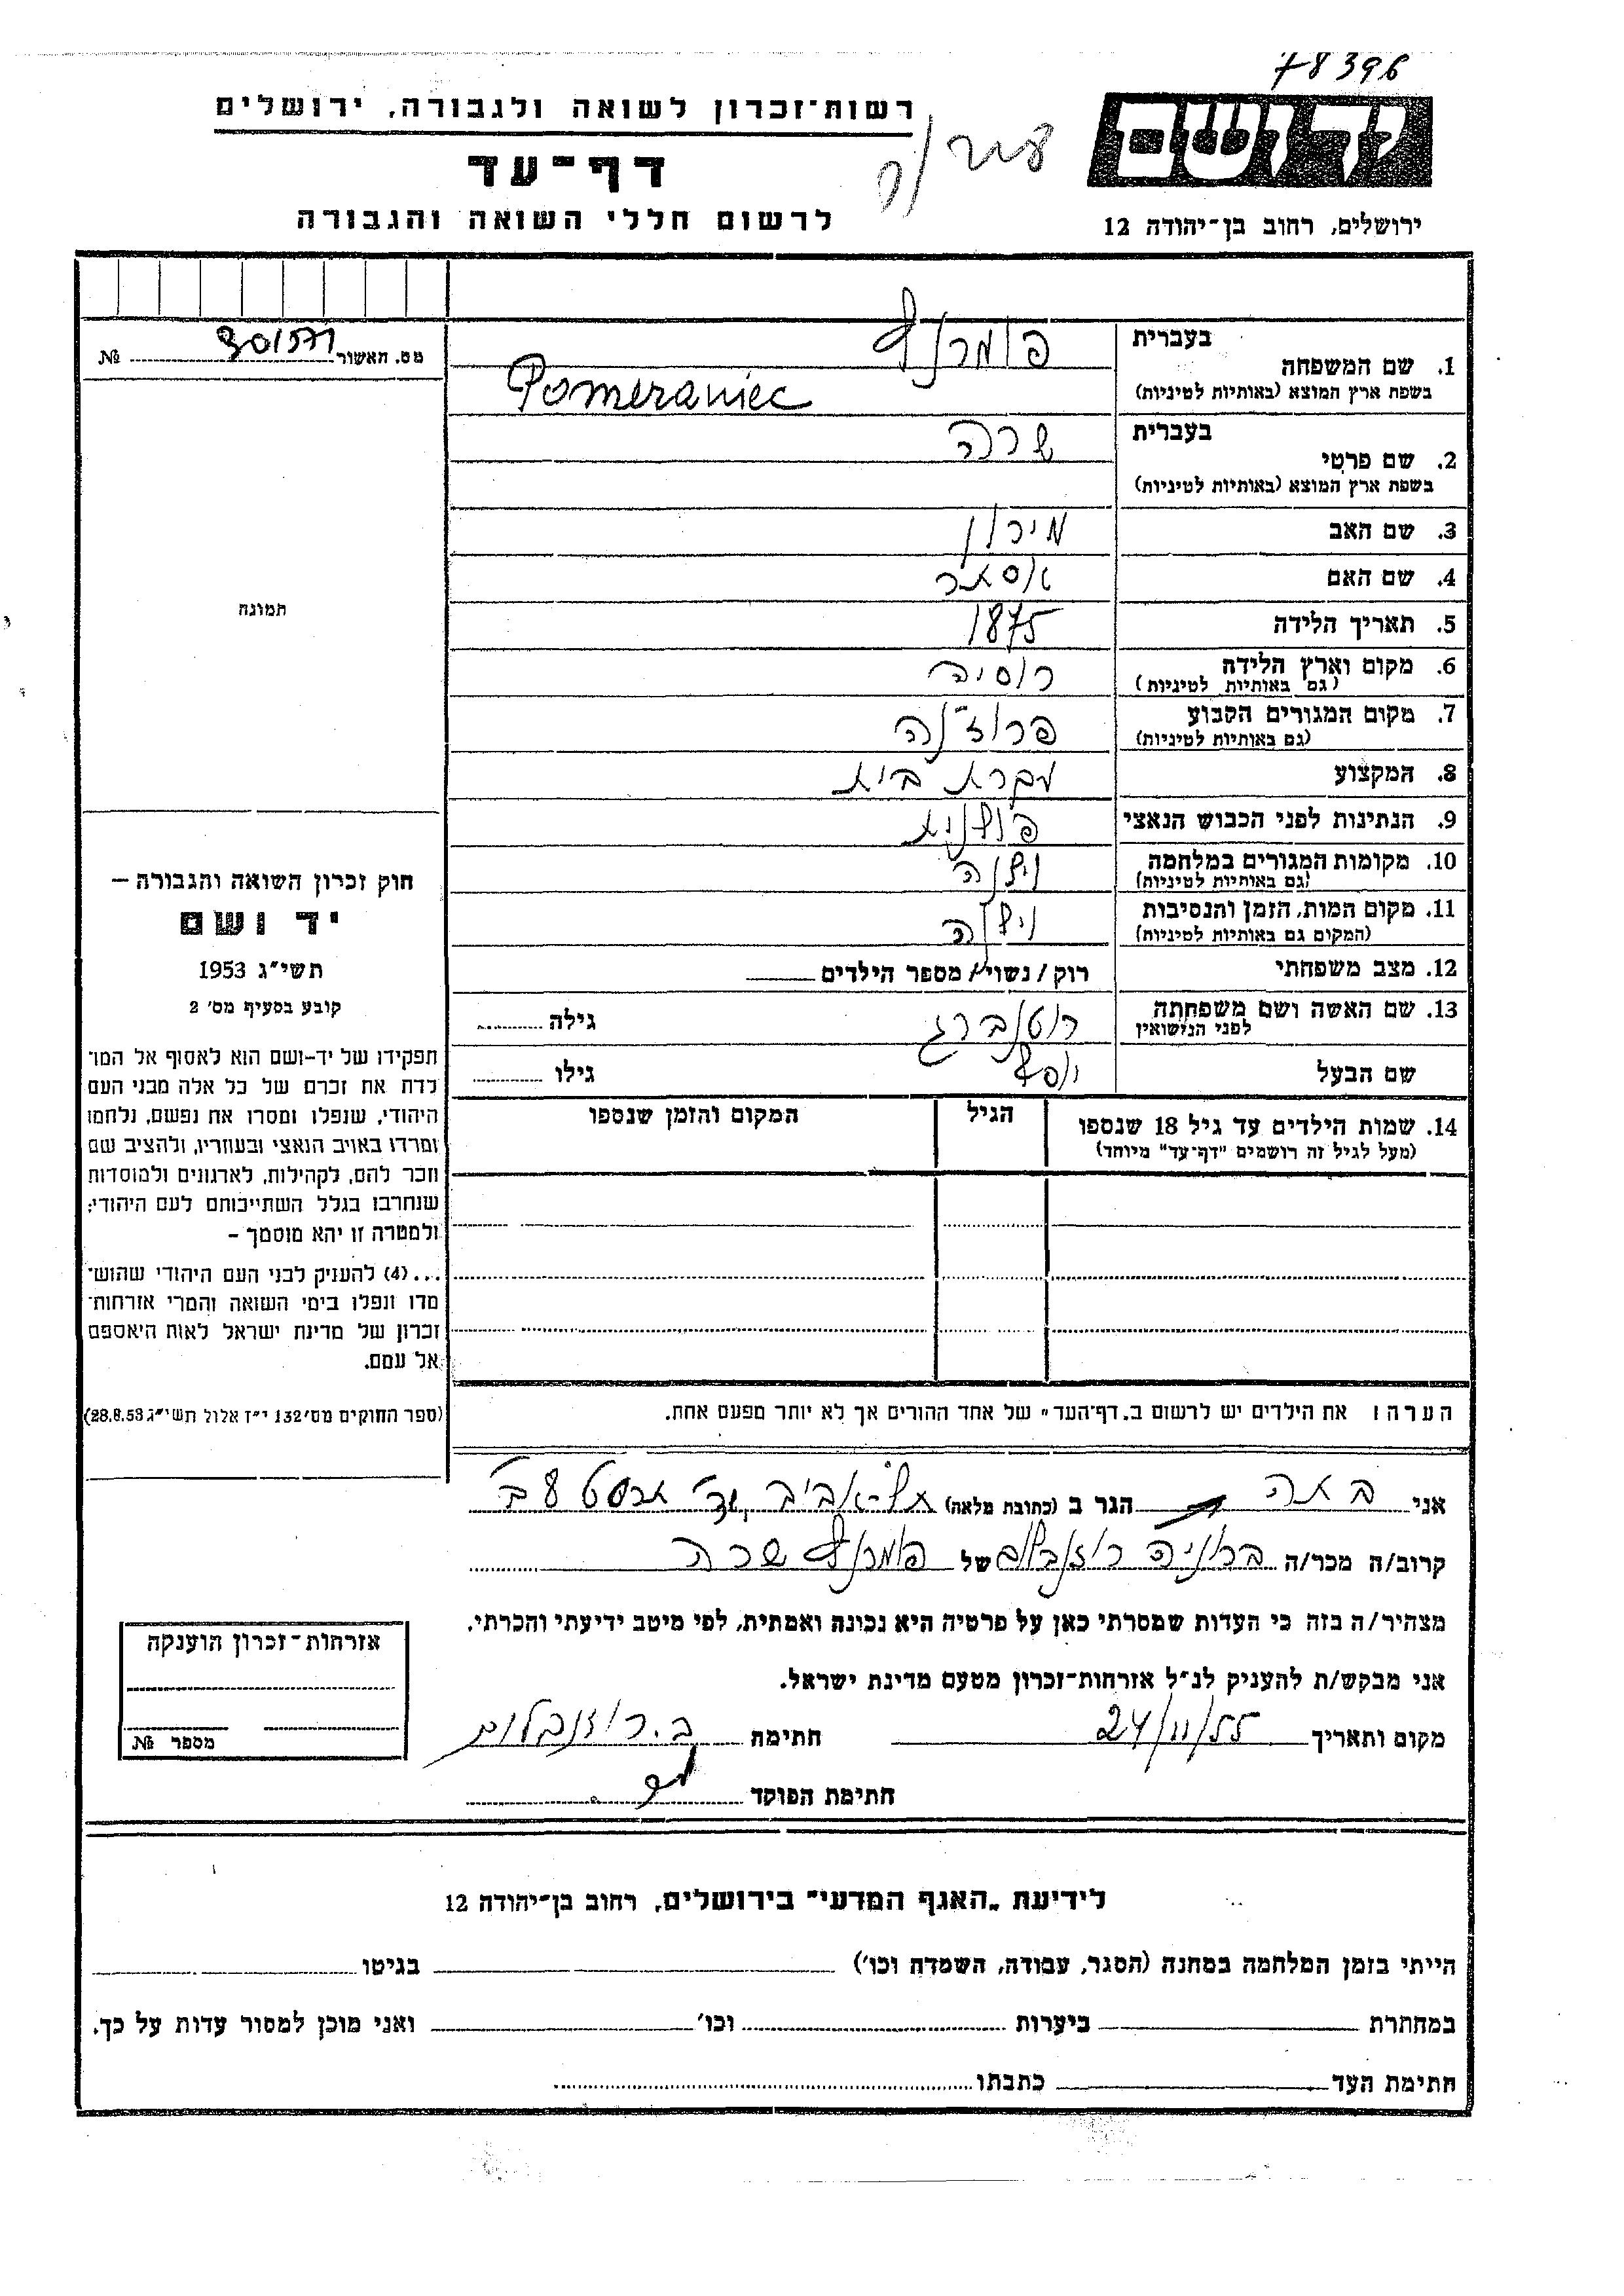 78396
רשות־זכרון לשואה ולגבורה, ירושלים
ידושם
דף־עד
לרשום חללי השואה והגבורה
ירושלים, רחוב בן־יהודה 12
מס. האשור №
תמונה
בעברית
1. שם המשפחה
בשפת ארץ המוצא (באותיות לטיניות)
Pomeraniec
בעברית
2. שם פרטי שרה
בשפת ארץ המוצא (באותיות לטיניות)
3. שם האב מירון
4. שם האם אסתר
5. תאריך הלידה 1875
6. מקום וארץ הלידה רוסיה
(גם באותיות לטיניות)
7. מקום המגורים הקבוע פרוז'נה
(גם באותיות לטיניות)
8. המקצוע עקרת בית
9. הנתינות לפני הכבוש הנאצי פולנית
10. מקומות המגורים במלחמה וילנה
(גם באותיות לטיניות)
11. מקום המות, הזמן והנסיבות וילנה
(המקום גם באותיות לטיניות)
12. מצב משפחתי רוק / נשוי / מספר הילדים
13. שם האשה ושם משפחתה רוטנברג גילה
לפני הנישואין
שם הבעל יוסף גילו
14. שמות הילדים עד גיל 18 שנספו הגיל המקום והזמן שנספו
(מעל לגיל זה רושמים "דף־עד" מיוחד)
חוק זכרון השואה והגבורה –
יד ושם
תשי"ג 1953
קובע בסעיף מס' 2
תפקידו של יד–ושם הוא לאסוף אל המו־
לדת את זכרם של כל אלה מבני העם
היהודי, שנפלו ומסרו את נפשם, נלחמו
ומרדו באויב הנאצי ובעוזריו, ולהציב שם
וזכר להם, לקהילות, לארגונים ולמוסדות
שנחרבו בגלל השתייכותם לעם היהודי;
ולמטרה זו יהא מוסמך –
...(4) להעניק לבני העם היהודי שהוש־
מדו ונפלו בימי השואה והמרי אזרחות־
זכרון של מדינת ישראל לאות היאספם
אל עמם.
(ספר החוקים מס' 132 י"ז אלול תשי"ג 28.8.53)
הערה: את הילדים יש לרשום ב„דף־העד" של אחד ההורים אך לא יותר מפעם אחת.
אני הגר ב (כתובת מלאה) תל־אביב
קרוב/ה מכר/ה ברוניה רוזנבלום של שרה
מצהיר/ה בזה כי העדות שמסרתי כאן על פרטיה היא נכונה ואמתית, לפי מיטב ידיעתי והכרתי.
אני מבקש/ת להעניק לנ"ל אזרחות־זכרון מטעם מדינת ישראל.
מקום ותאריך 24/11/55 חתימה ב. רוזנבלום
חתימת הפוקד
אזרחות־זכרון הוענקה
מספר №
לידיעת „האגף המדעי" בירושלים, רחוב בן־יהודה 12
הייתי בזמן המלחמה במחנה (הסגר, עבודה, השמדה וכו') בגיטו
במחתרת ביערות וכו' ואני מוכן למסור עדות על כך.
חתימת העד כתבתו